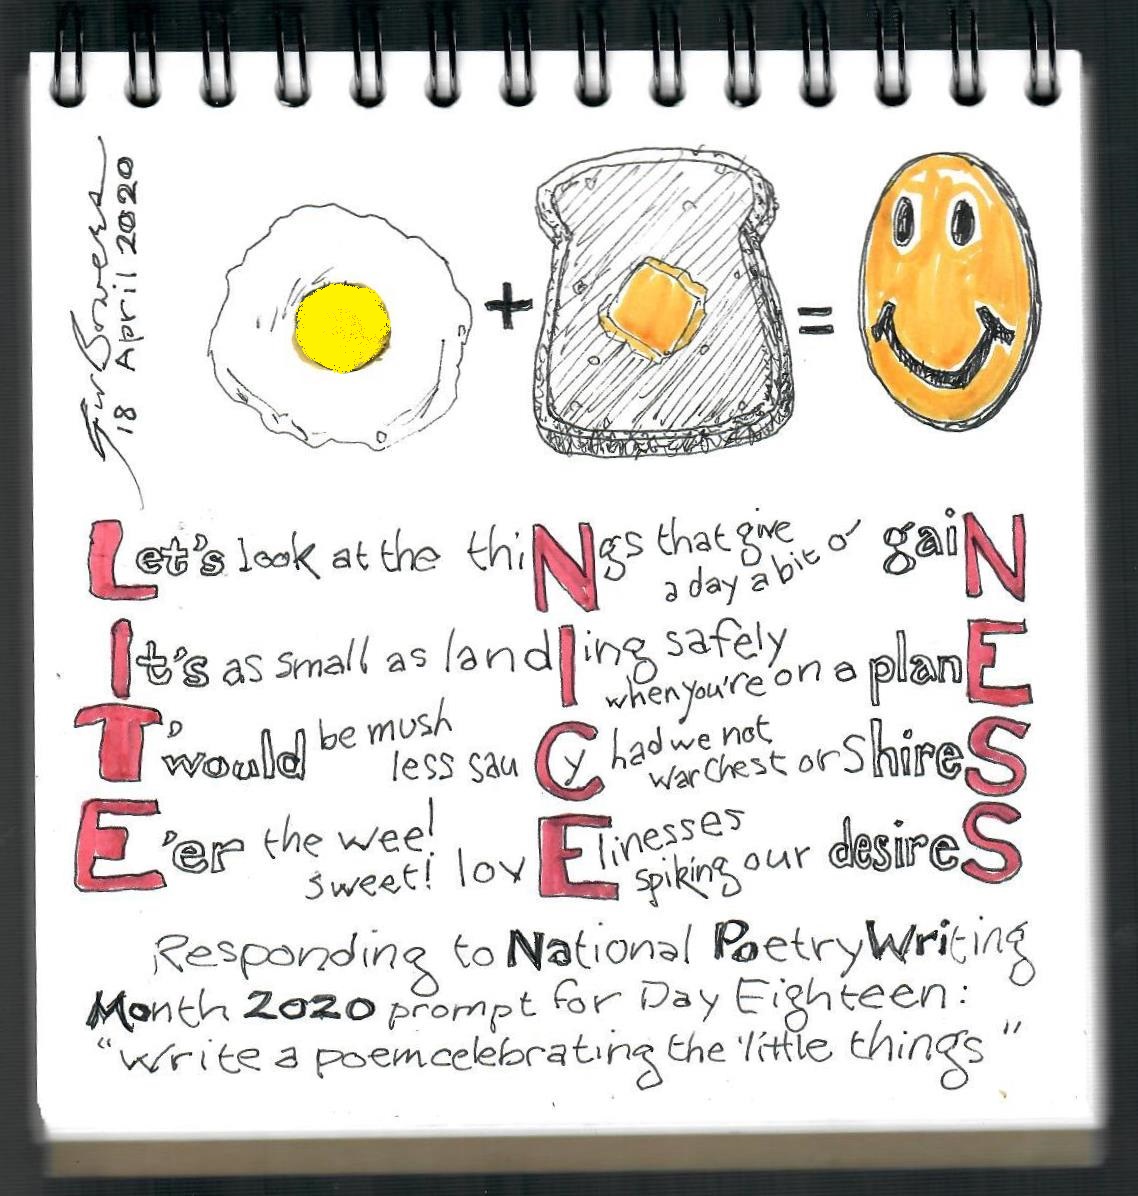 18 April 2020
+ =
Let's look at the thiNgs that give a day a bit o' gaiN
It's as small as landIing safely when you're on a planE
T'would be mush less sauCy had we not war chest or ShireS
E'er the wee! sweet! lovElinesses spiking our desireS
Responding to National Poetry Writing
Month 2020 prompt for Day Eighteen:
"Write a poem celebrating the 'little things"